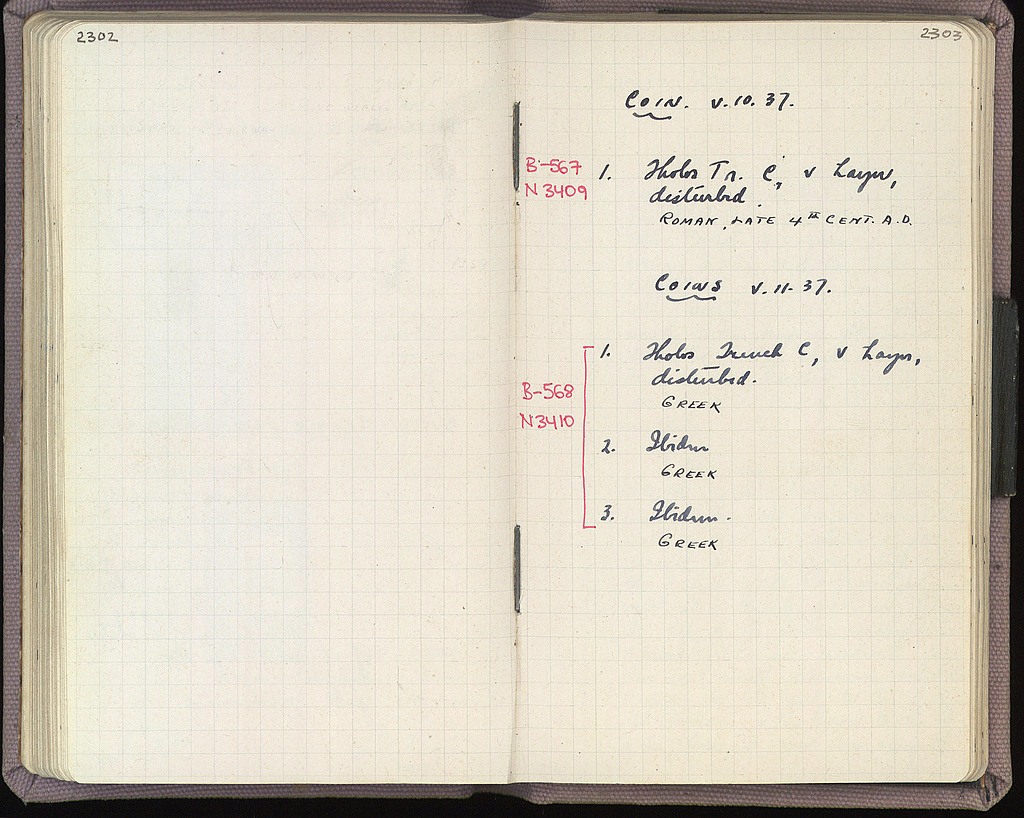 2302
2303
COIN. V.10.37.
B-567
N 3409
1. Tholos Tr. C, V Layer,
disturbed.
ROMAN, LATE 4TH CENT. A.D.
COINS V.11.37.
B-568
N3410
1. Tholos Trench C, V Layer,
disturbed.
GREEK
2. Ibidem
GREEK
3. Ibidem.
GREEK